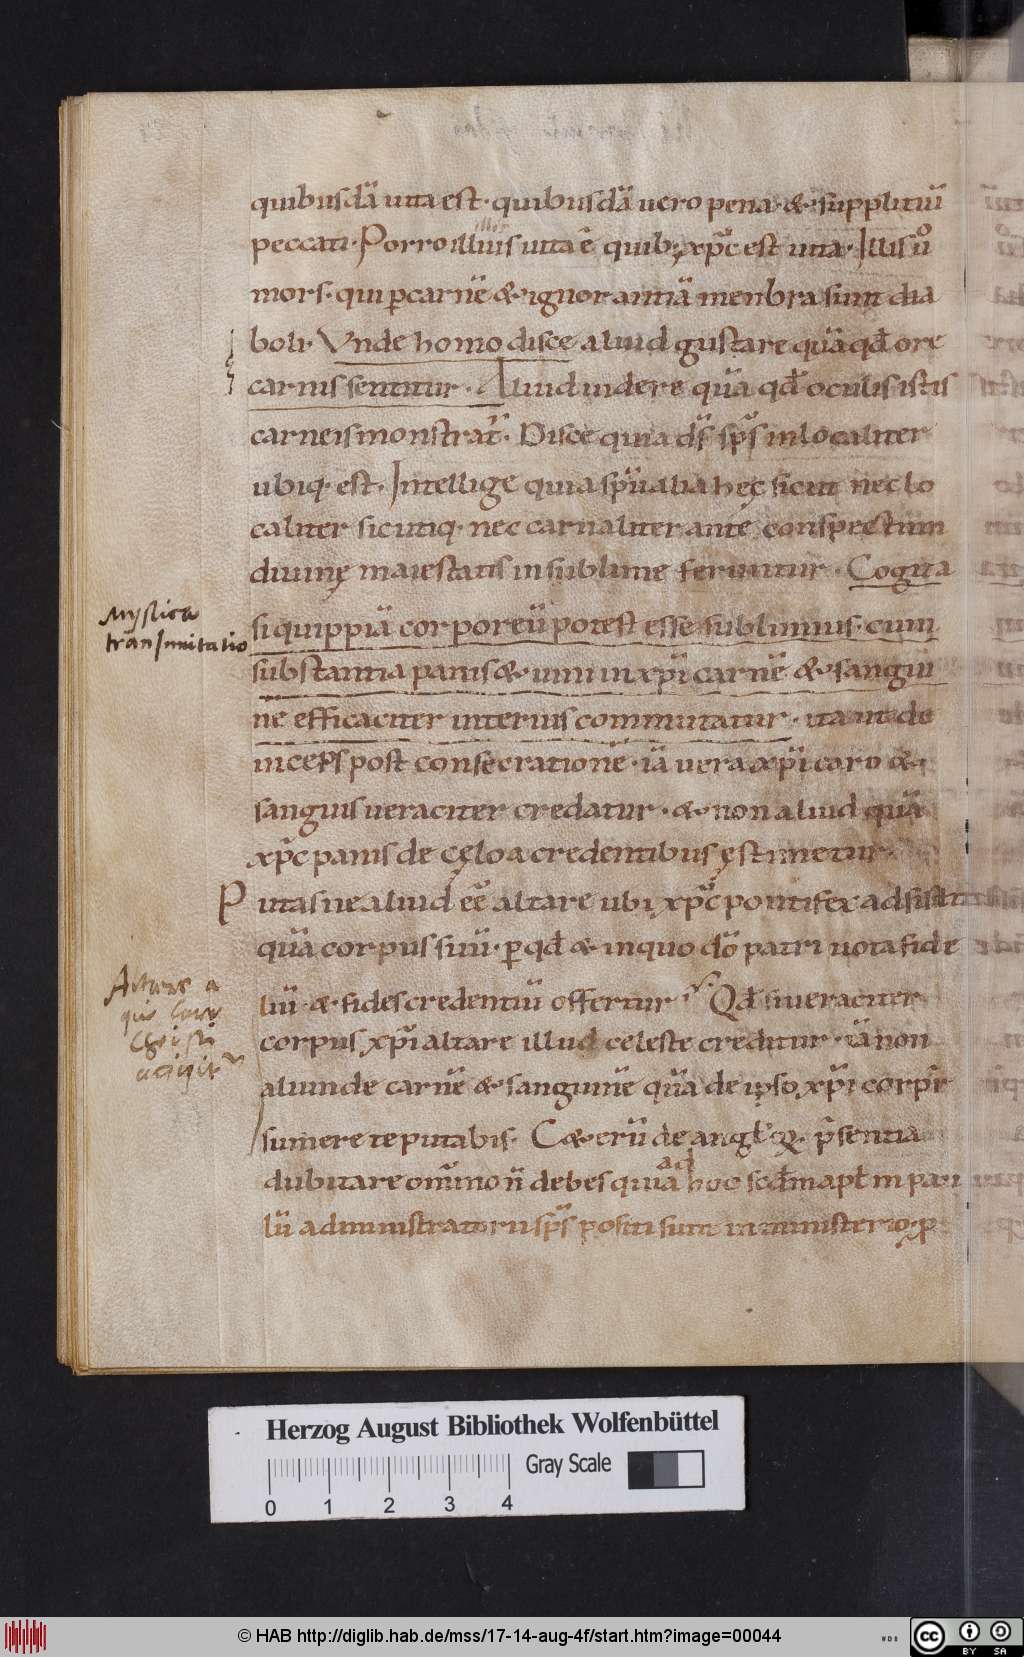 quibusdā uita est· quibusdā uero pena· & suppliciū
peccati· Porro illius uita ē quib; xp̄c est uita· Illis ū
mors· qui p carnē & ignorantiā menbra sunt dia
boli· Vnde homo disce aliud gustare quā qd̄ ore
carnis sentitur· Aliud uidere quā qd̄ oculis istis
carneis monstrat̄· Disce quia ds̄ sps̄ inlocaliter
ubiq· est· Intellige quia spūalia hęc sicut nec lo
caliter sic utiq· nec carnaliter ante conspectum
diuinę maiestatis in sublime feruntur· Cogita
Mystica
transmutatio
si quippiā corporeū potest esse sublimius· cum
substantia panis & uini in xp̄i carnē & sangui
ne efficaciter interius commutatur· ita ut de
inceps post consecrationē· iā uera xp̄i caro &
sanguis ueraciter credatur· & non aliud quā
xp̄c panis de cęlo a credentibus ęstimetur·
Putasne aliud eē altare ubi xp̄c pontifex adsistit
quā corpus suū· p qd̄ & in quo dō patri uota fide
liū & fides credentiū offertur· Qd̄ si ueraciter
corpus xp̄i altare illud celeste creditur· iā non
aliunde carnē & sanguinē quā de ipso xp̄i corpr̄e
sumere te putabis· C&erū de angl̄oꝝ· p̄sentia
dubitare om̄ino n̄ debes quia ad hoc scd̄m apl̄m pau
lū administratorii sps̄ positi sunt in ministerio· p
Herzog August Bibliothek Wolfenbüttel
Gray Scale
0 1 2 3 4
© HAB http://diglib.hab.de/mss/17-14-aug-4f/start.htm?image=00044
WDB
cc BY SA